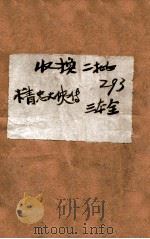 收换 二批
293
精忠大侠传
三本全